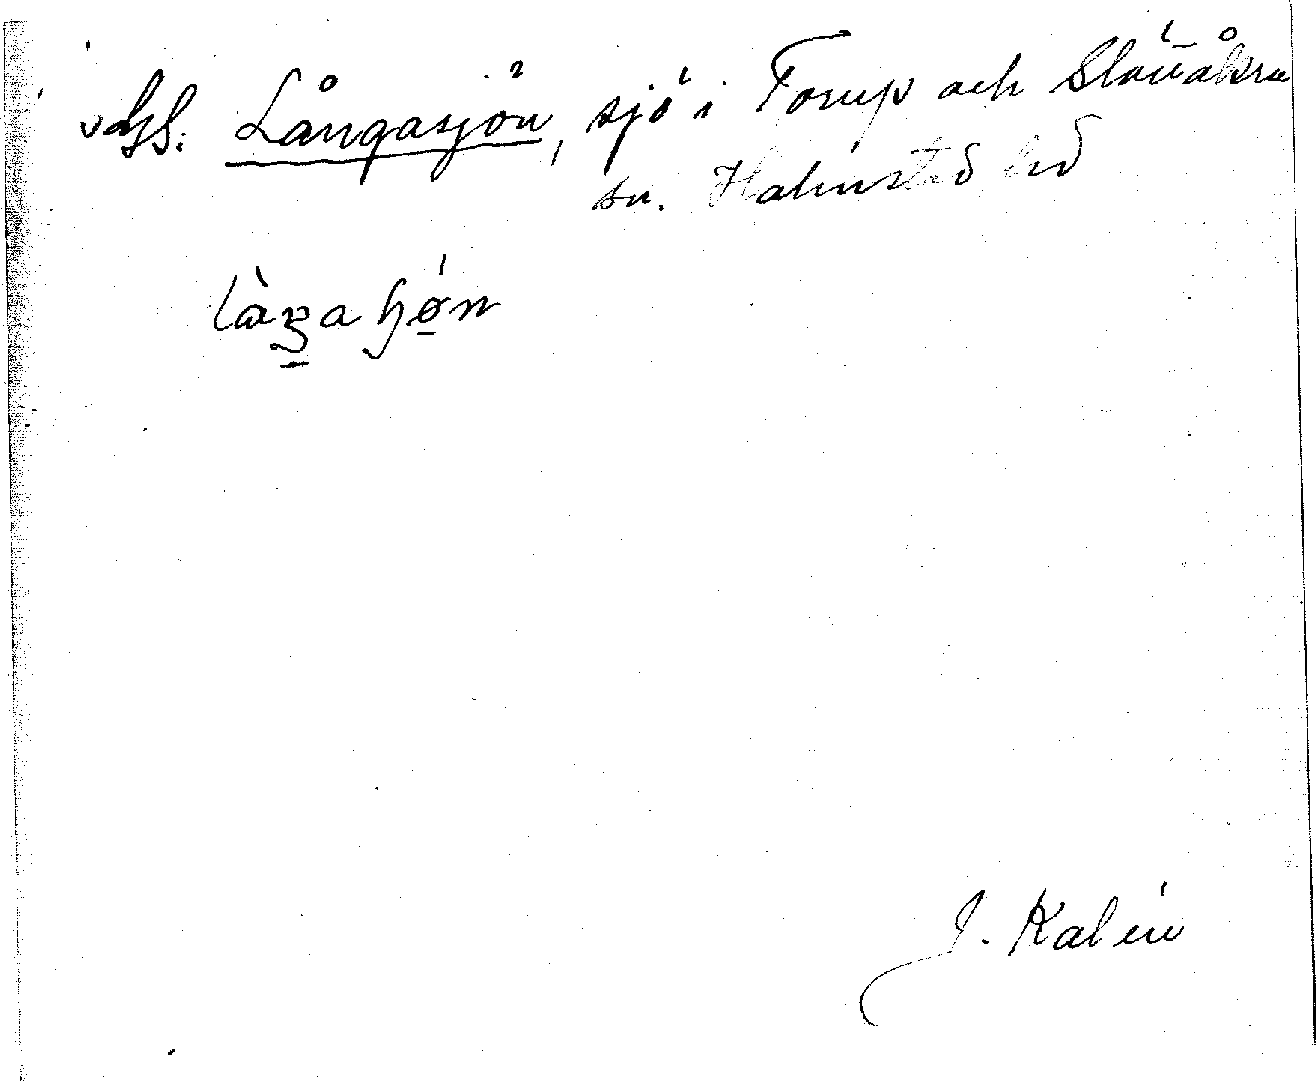 Långasjön, sjö i Torup och Slättåkra
sn. Halmstad hd
J. Kalén